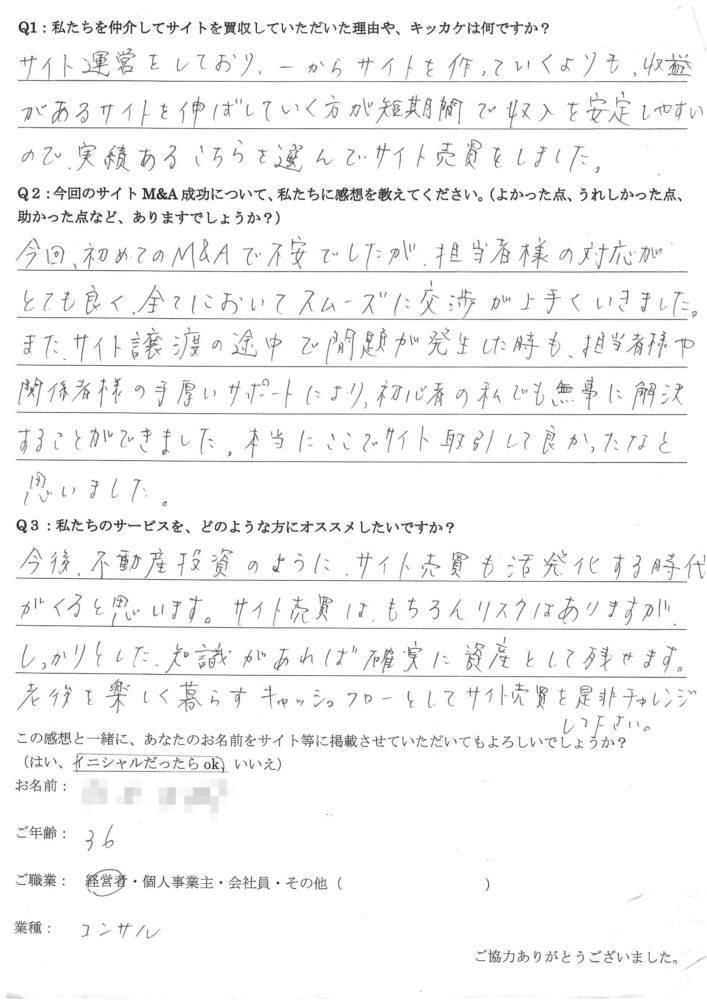 Q1:私たちを仲介してサイトを買収していただいた理由や、キッカケは何ですか？
サイト運営をしており、一からサイトを作っていくよりも、収益
があるサイトを伸ばしていく方が短期間で収入を安定しやすい
ので、実績あるこちらを選んでサイト売買をしました。
Q2:今回のサイトM&A成功について、私たちに感想を教えてください。（よかった点、うれしかった点、
助かった点など、ありますでしょうか？）
今回、初めてのM&Aで不安でしたが、担当者様の対応が
とても良く、全てにおいてスムーズに交渉が上手くいきました。
また、サイト譲渡の途中で問題が発生した時も、担当者様や
関係者様の手厚いサポートにより、初心者の私でも無事に解決
することができました。本当にここでサイト取引して良かったなと
思いました。
Q3:私たちのサービスを、どのような方にオススメしたいですか？
今後、不動産投資のように、サイト売買も活発化する時代
がくると思います。サイト売買は、もちろんリスクはありますが、
しっかりとした、知識があれば確実に資産として残せます。
老後を楽しく暮らすキャッシュフローとしてサイト売買を是非チャレンジ
して下さい。
この感想と一緒に、あなたのお名前をサイト等に掲載させていただいてもよろしいでしょうか？
（はい、イニシャルだったらok、いいえ）
お名前：
ご年齢： 36
ご職業： 経営者・個人事業主・会社員・その他（ ）
業種： コンサル
ご協力ありがとうございました。